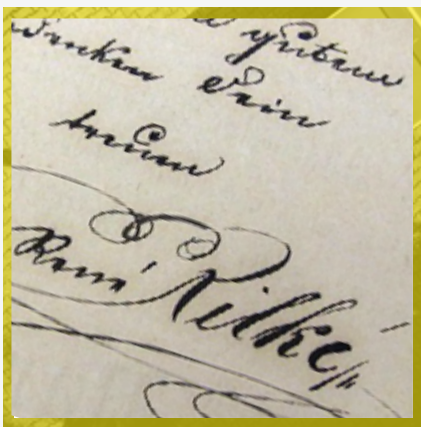 gutem
Denken Dein
treuer
René Rilke